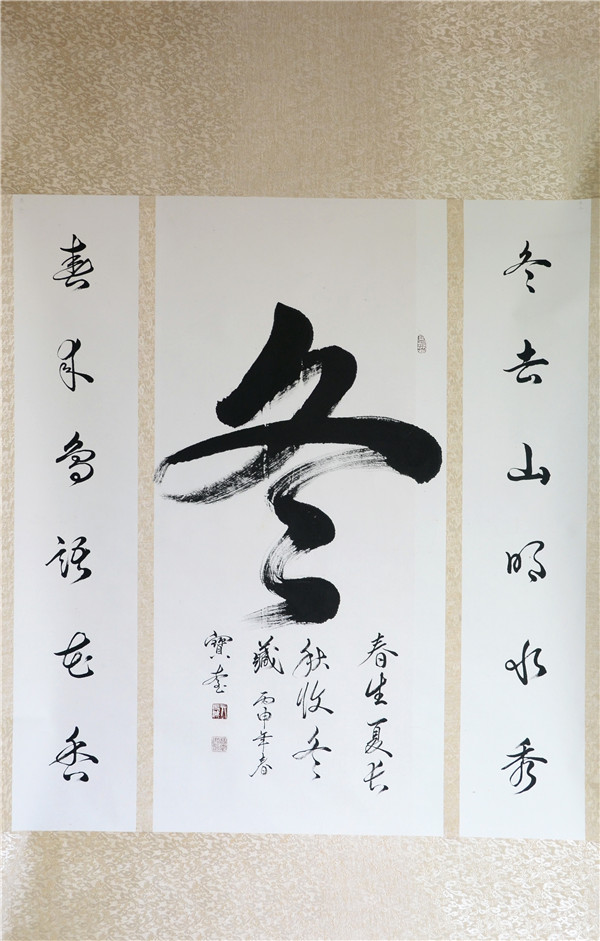 冬去山明水秀
冬
春生夏长
秋收冬
藏 丙申年春
寶奎
春来鸟語花香